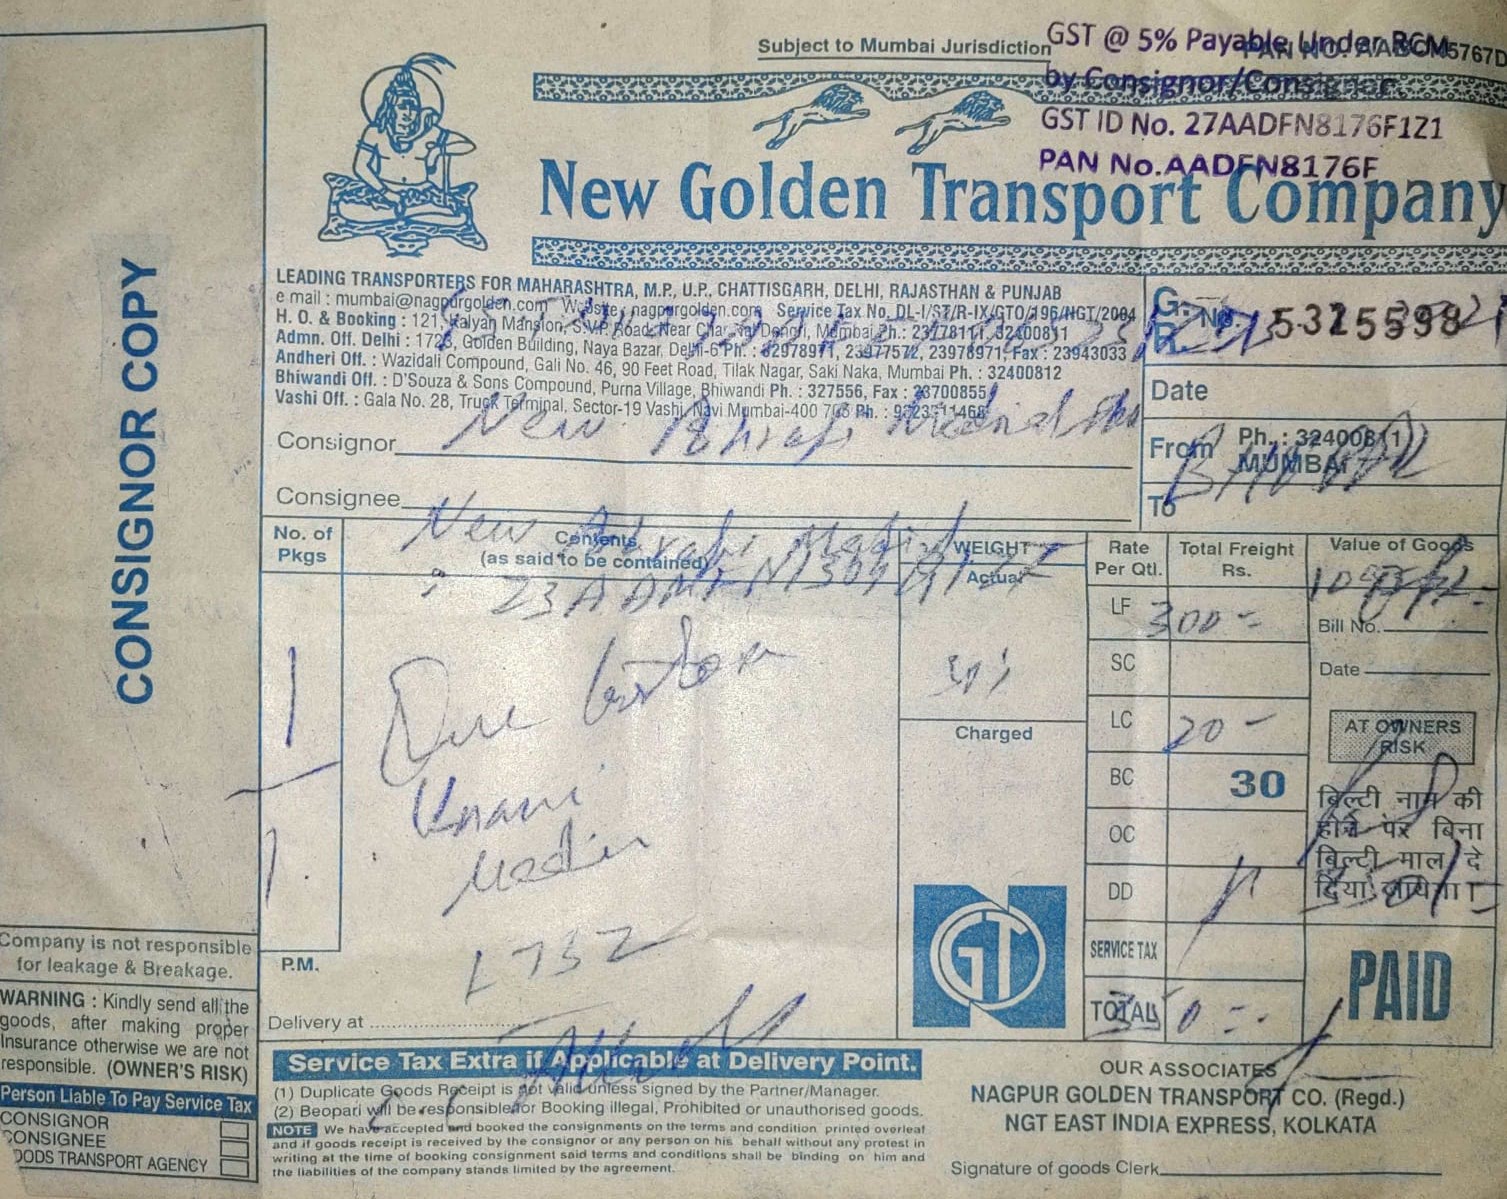 Subject to Mumbai Jurisdiction
GST @ 5% Payable Under RCM
by Consignor/Consignor.
GST ID No. 27AADFN8176F1Z1
PAN No.AADFN8176F
New Golden Transport Company
LEADING TRANSPORTERS FOR MAHARASHTRA, M.P., U.P., CHATTISGARH, DELHI, RAJASTHAN & PUNJAB
e mail : mumbai@nagpurgolden.com Website : nagpurgolden.com Service Tax No. DL-I/ST/R-IX/GTO/196/NGT/2004
H. O. & Booking : 121, Kalyan Mansion, S.V.P. Road, Near Mumbai Ph.: 32400811
Admn. Off. Delhi : Golden Building, Naya Bazar, Delhi-6 Ph. : 23977572, 23978971, Fax : 23943033
Andheri Off. : Wazidali Compound, Gali No. 46, 90 Feet Road, Tilak Nagar, Saki Naka, Mumbai Ph. : 32400812
Bhiwandi Off. : D'Souza & Sons Compound, Purna Village, Bhiwandi Ph. : 327556, Fax : 23700855
Vashi Off. : Gala No. 28, Truck Terminal, Sector-19 Vashi, Navi Mumbai-400 703 Ph. :
G. R. No. 5325598
Date
Consignor New
From Ph. : 32400811
MUMBAI
To
Consignee New
CONSIGNOR COPY
No. of Pkgs
Contents
(as said to be contained)
WEIGHT
Actual
Rate Per Qtl.
Total Freight Rs.
Value of Goods
LF 300
Bill No.
SC
Date
1
LC 20
Charged
AT OWNERS RISK
BC 30
Unani
बिल्टी नाम की
होने पर बिना
बिल्टी माल दे
दिया जायेगा।
OC
1
DD
GT
SERVICE TAX
L 732
PAID
P.M.
TOTAL 350
Delivery at
Company is not responsible
for leakage & Breakage.
WARNING : Kindly send all the
goods, after making proper
Insurance otherwise we are not
responsible. (OWNER'S RISK)
Person Liable To Pay Service Tax
CONSIGNOR
CONSIGNEE
GOODS TRANSPORT AGENCY
Service Tax Extra if Applicable at Delivery Point.
(1) Duplicate Goods Receipt is not valid unless signed by the Partner/Manager.
(2) Beopari will be responsible for Booking illegal, Prohibited or unauthorised goods.
NOTE We have accepted and booked the consignments on the terms and condition printed overleaf
and if goods receipt is received by the consignor or any person on his behalf without any protest in
writing at the time of booking consignment said terms and conditions shall be binding on him and
the liabilities of the company stands limited by the agreement.
OUR ASSOCIATES
NAGPUR GOLDEN TRANSPORT CO. (Regd.)
NGT EAST INDIA EXPRESS, KOLKATA
Signature of goods Clerk